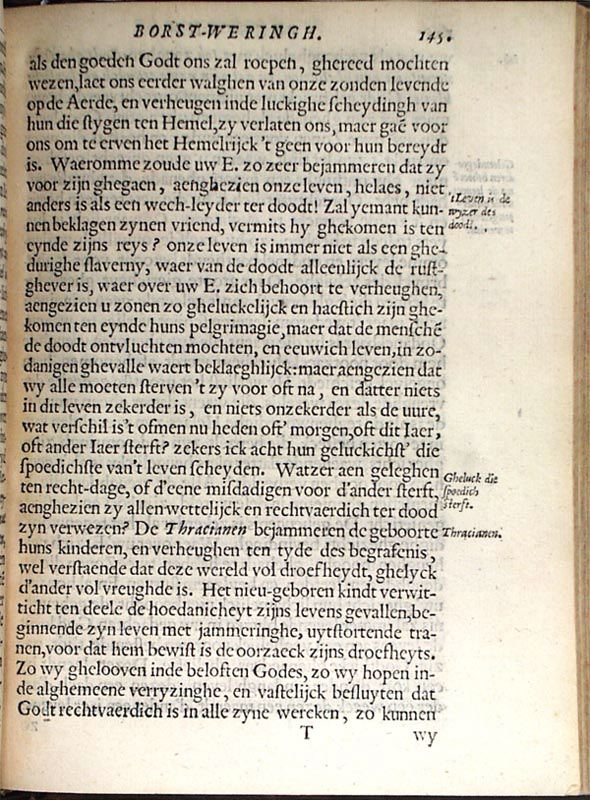 BORST-WERINGH. 145.
als den goeden Godt ons zal roepen, ghereed mochten
wezen, laet ons eerder walghen van onze zonden levende
op de Aerde, en verheugen inde luckighe scheydingh van
hun die stygen ten Hemel, zy verlaten ons, maer gaē voor
ons om te erven het Hemelrijck 't geen voor hun bereydt
is. Waeromme zoude uw E. zo zeer bejammeren dat zy
voor zijn ghegaen, aenghezien onze leven, helaes, niet
anders is als een wech-leyder ter doodt! Zal yemant kun-
nen beklagen zynen vriend, vermits hy ghekomen is ten
eynde zijns reys? onze leven is immer niet als een ghe-
durighe slaverny, waer van de doodt alleenlijck de rust-
ghever is, waer over uw E. zich behoort te verheughen,
aengezien u zonen zo gheluckelijck en haestich zijn ghe-
komen ten eynde huns pelgrimagie, maer dat de menschē
de doodt ontvluchten mochten, en eeuwich leven, in zo-
danigen ghevalle waert beklaeghlijck: maer aengezien dat
wy alle moeten sterven 't zy voor oft na, en datter niets
in dit leven zekerder is, en niets onzekerder als de uure,
wat verschil is't ofmen nu heden oft' morgen, oft dit Iaer,
oft ander Iaer sterft? zekers ick acht hun geluckichst' die
spoedichste van't leven scheyden. Watzer aen geleghen
ten recht-dage, of d'eene misdadigen voor d'ander sterft,
aenghezien zy allen wettelijck en rechtvaerdich ter dood
zyn verwezen? De Thracianen bejammeren de geboorte
huns kinderen, en verheughen ten tyde des begrafenis,
wel verstaende dat deze wereld vol droefheydt, ghelyck
d'ander vol vreughde is. Het nieu-geboren kindt verwit-
ticht ten deele de hoedanicheyt zijns levens gevallen, be-
ginnende zyn leven met jammeringhe, uytstortende tra-
nen, voor dat hem bewist is de oorzaeck zijns droefheyts.
Zo wy ghelooven inde beloften Godes, zo wy hopen in-
de alghemeene verryzinghe, en vastelijck besluyten dat
Godt rechtvaerdich is in alle zyne wercken, zo kunnen
T wy
't Leven is de
wyzer des
doodt.
Gheluck die
spoedich
sterft.
Thracianen.